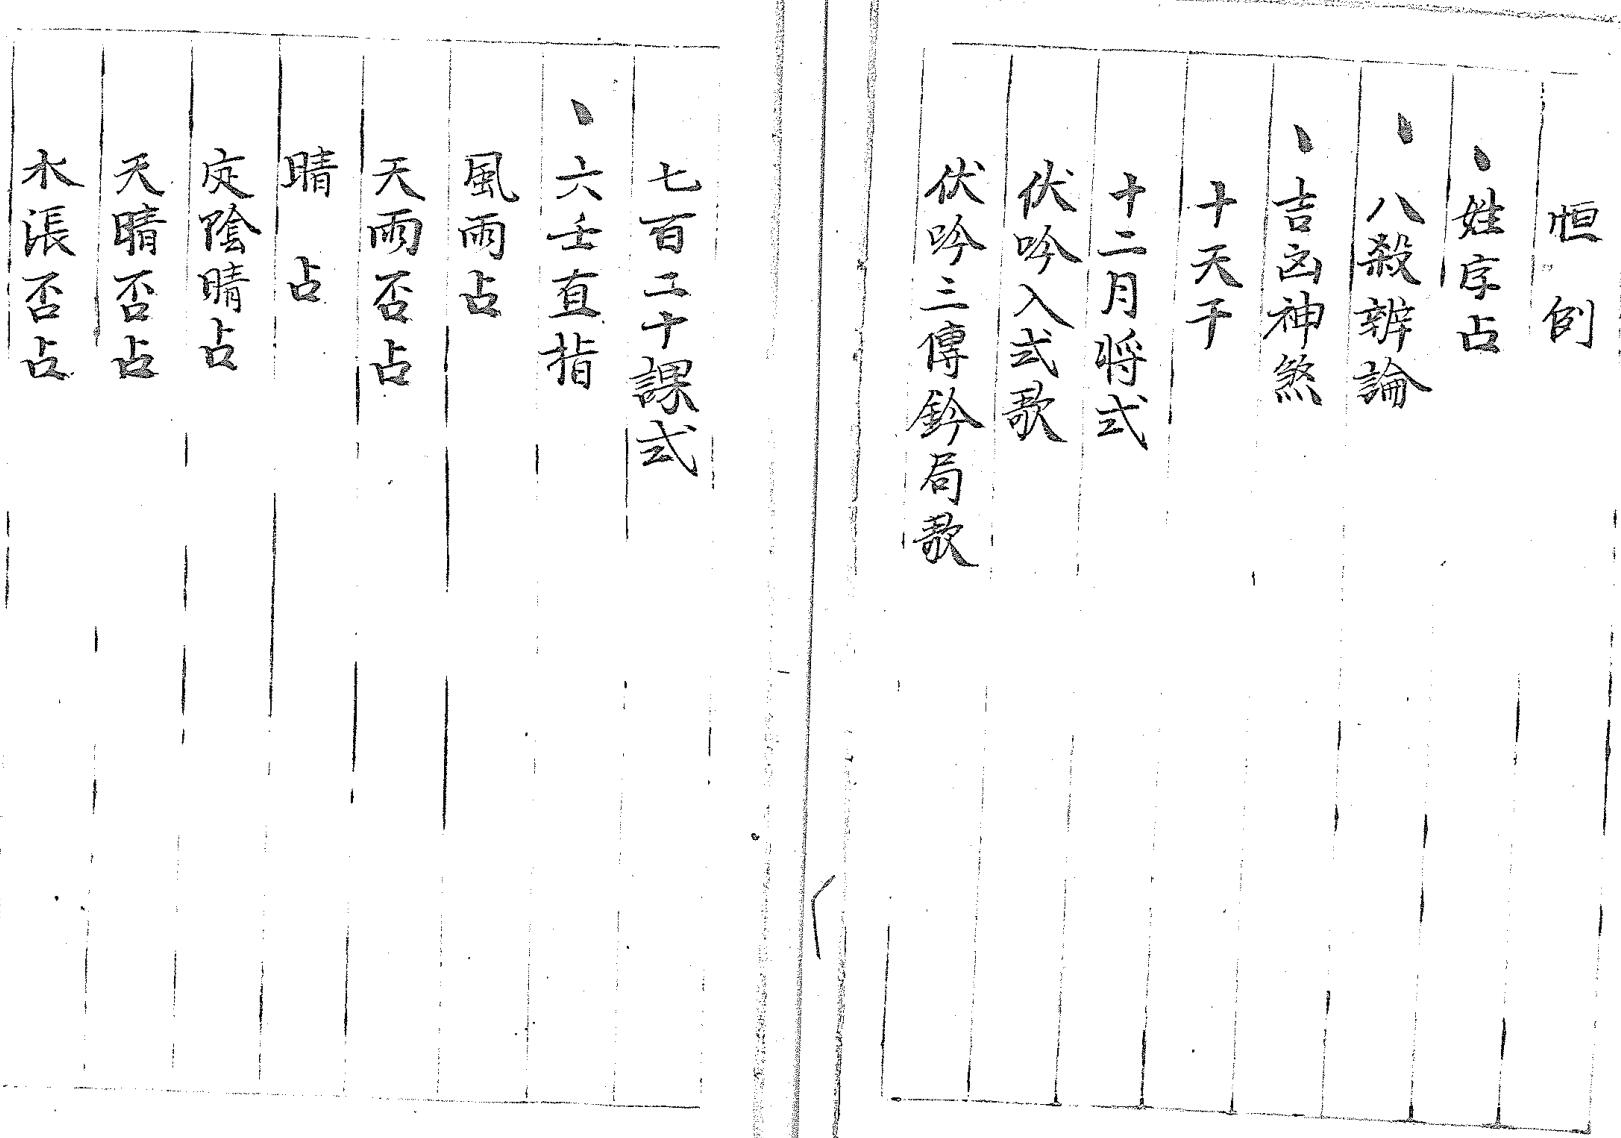 恒例
、姓字占
、八殺辨論
、吉凶神煞
十天干
十二月将式
伏吟入式歌
伏吟三傳鈐局歌
七百二十課式
、六壬直指
風雨占
天雨否占
晴占
定陰晴占
天晴否占
水漲否占